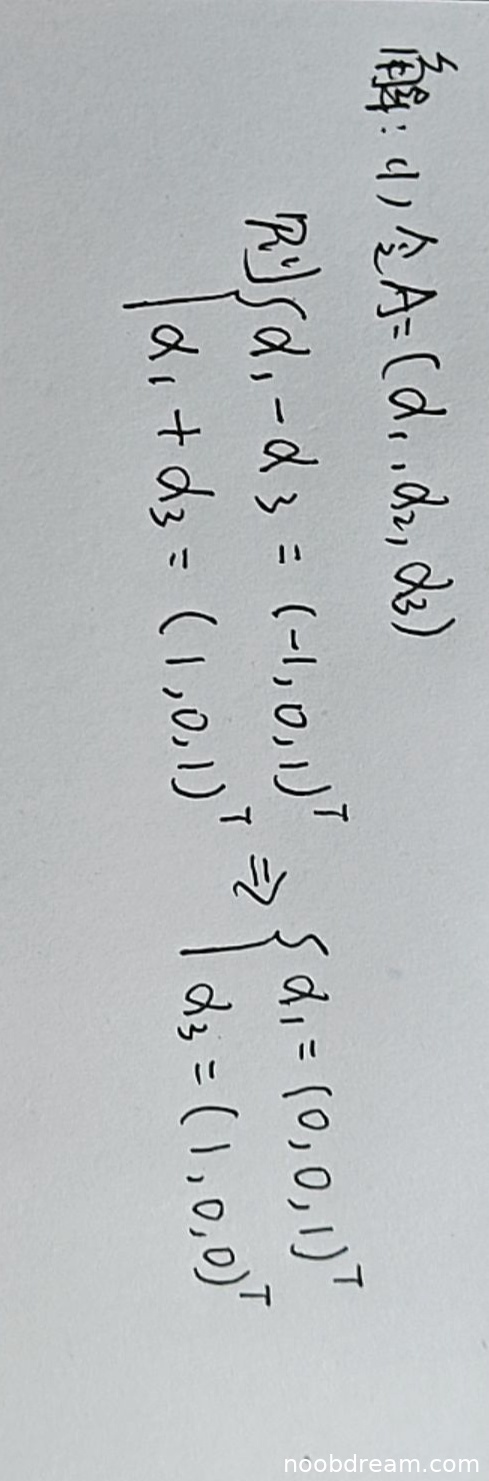 解: (1) 令A=(α₁,α₂,α₃)
则{α₁-α₃=(-1,0,1)ᵀ
α₁+α₃=(1,0,1)ᵀ ⇒ {α₁=(0,0,1)ᵀ
α₃=(1,0,0)ᵀ
noobdream.com